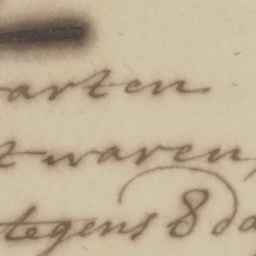 arten
t waren,
tegens 8 da